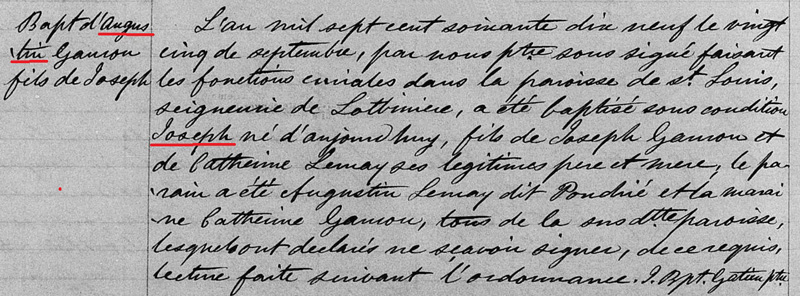 Bapt d'Augus
tin Gamou
fils de Joseph
L'an mil sept cent soixante dix neuf le vingt
cinq de septembre, par nous ptre sous signé faisant
les fonctions curiales dans la paroisse de st. Louis,
seigneurie de Lotbiniere, a été baptisé sous condition
Joseph né d'aujourd huy, fils de Joseph Gamou et
de Catherine Lemay ses legitimes pere et mere, le pa-
rain a été Augustin Lemay dit Poudrié et la marai
ne Catherine Gamou, tous de la sus dtte paroisse,
lesquels ont declarés ne sçavoir signer, de ce requis,
lecture faite suivant l'ordonnance. J. Bpt. Gatien ptre